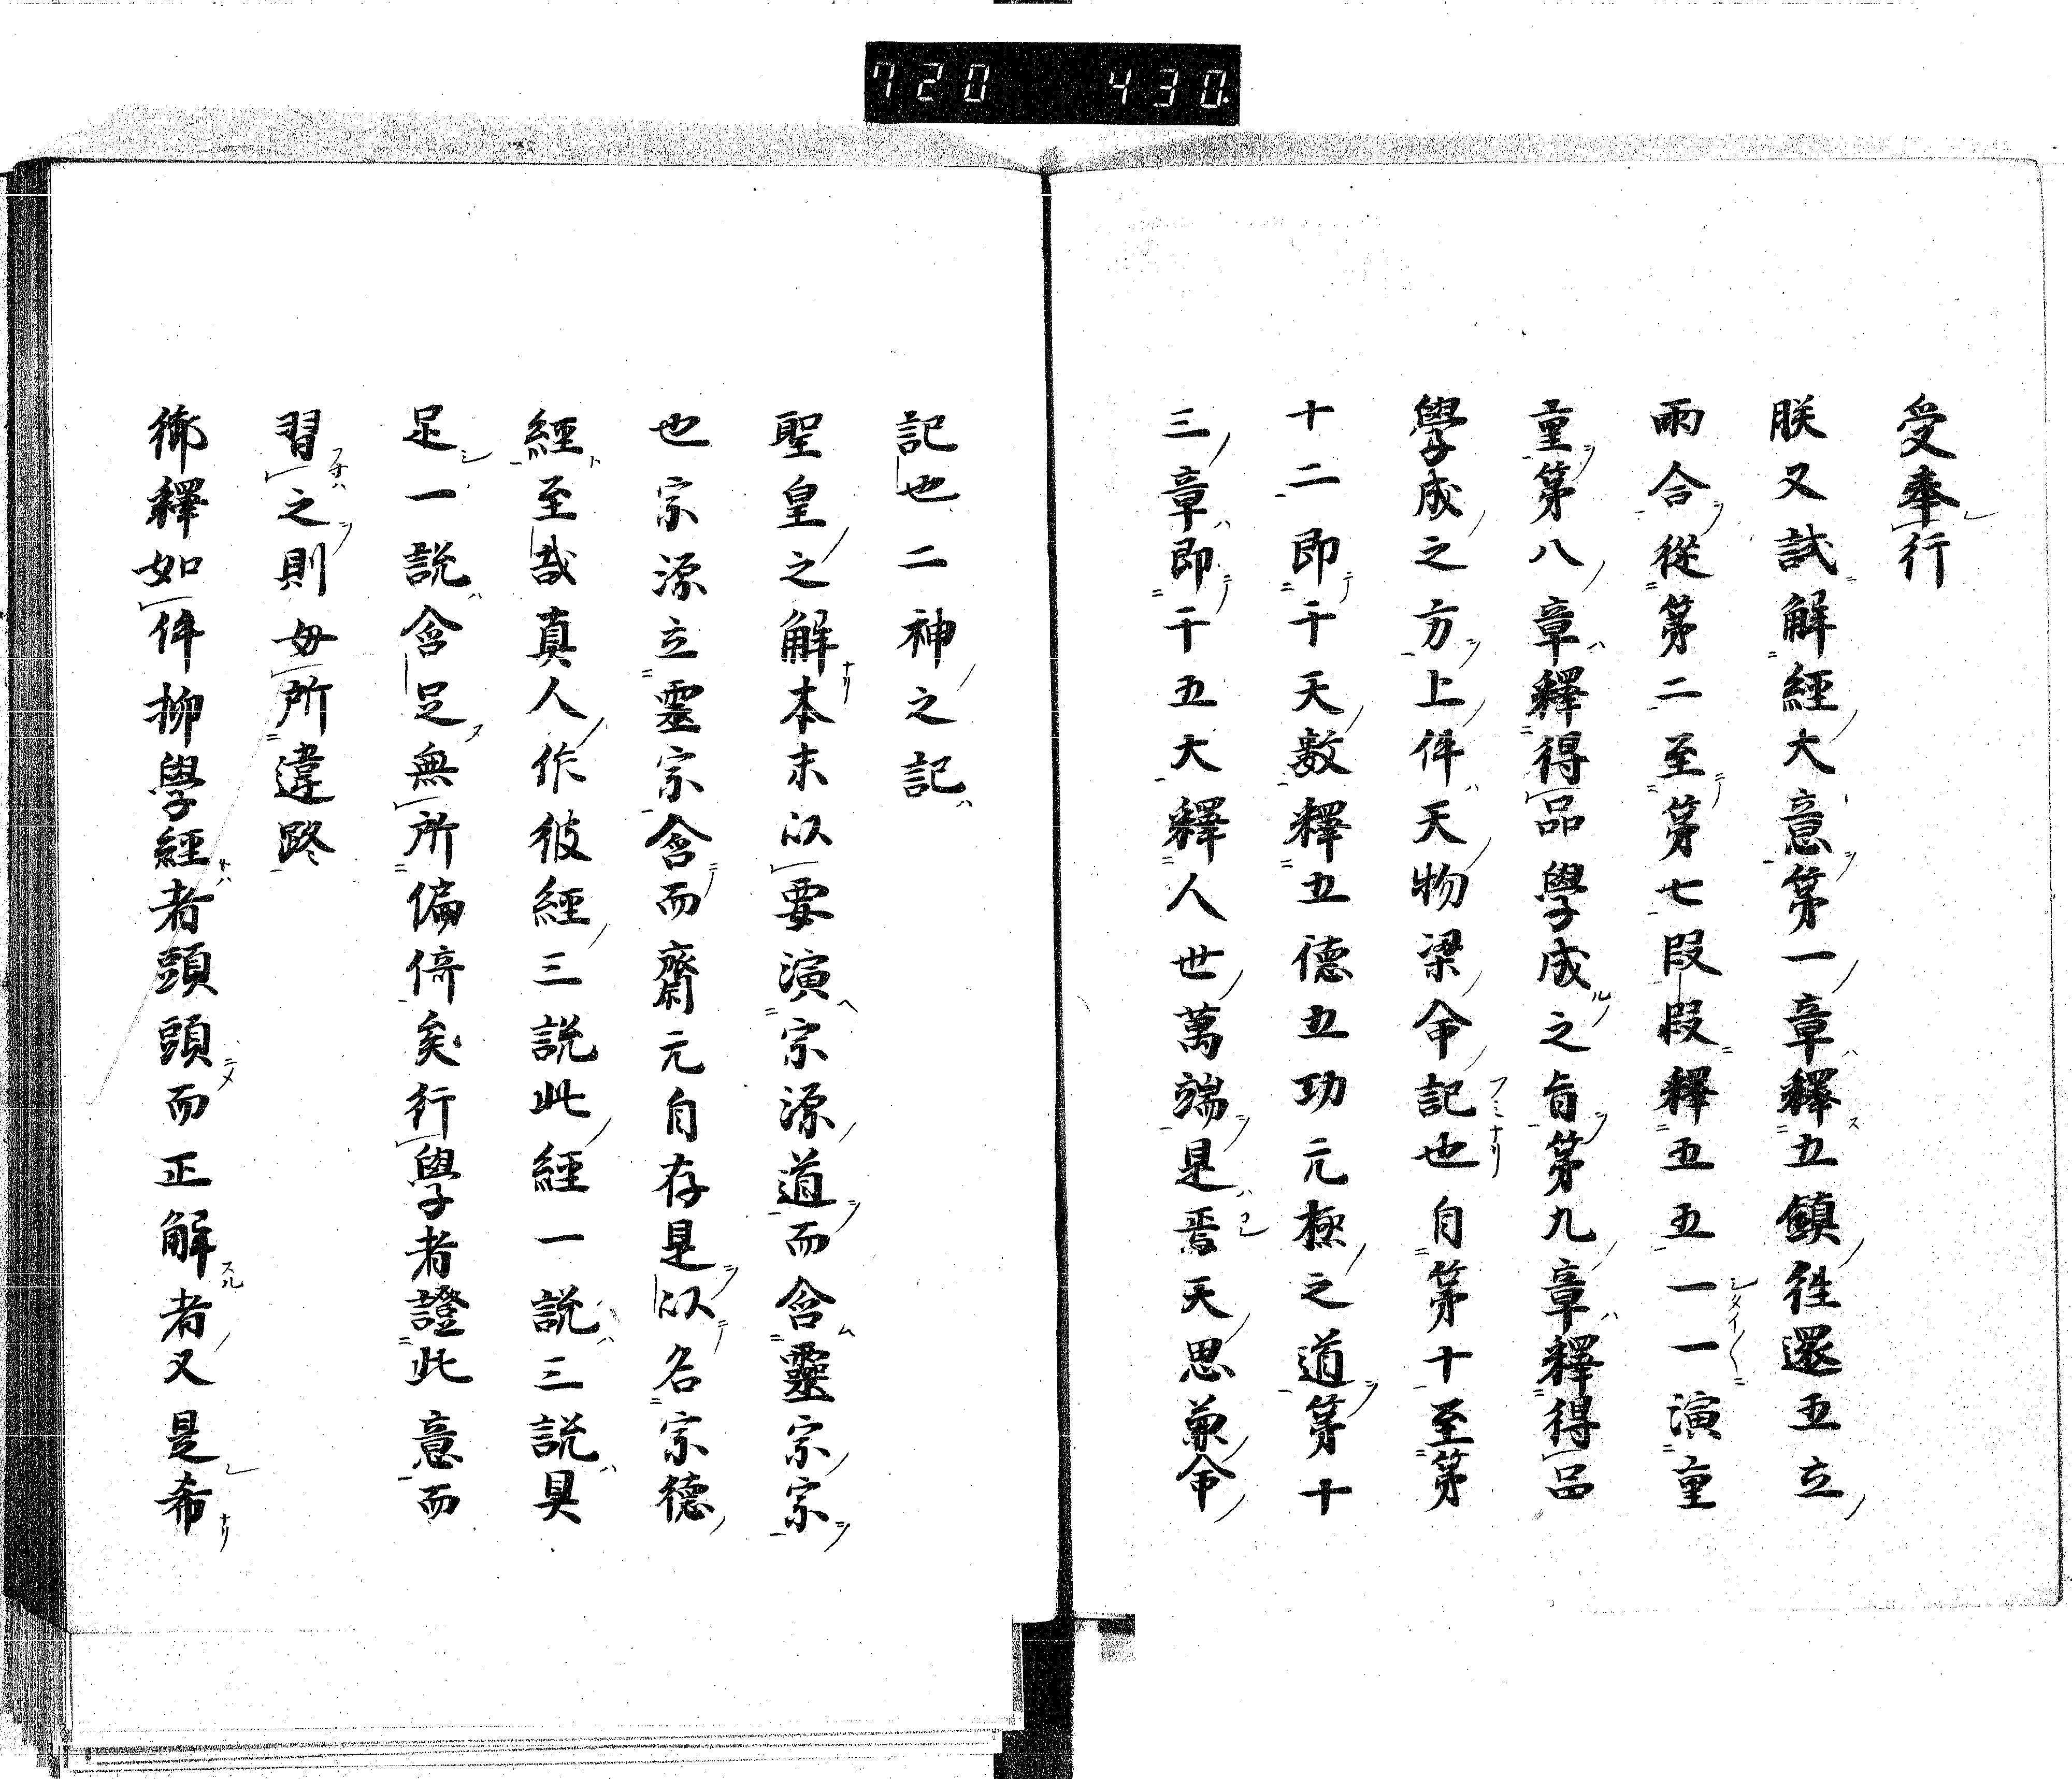 720 430.
受奉行
朕又試解經大意第一章釋五鎮往還五立
兩合從第二至第七段段釋五五一一演重
重第八章釋得品學成之旨第九章釋得品
學成之方上件天物梁命記也自第十至第
十二即干天數釋五德五功元極之道第十
三章即干五大釋人世萬端是焉天思兼命
記也二神之記
聖皇之解本末以要演宗源道而含靈宗宗
也宗源立靈宗含而齋元自存是以名宗德
經至哉真人作彼經三説此經一説三説具
足一説含足無所偏倚矣行學者證此意而
習之則毋所違路
御釋如件抑學經者頭頭而正解者又是希